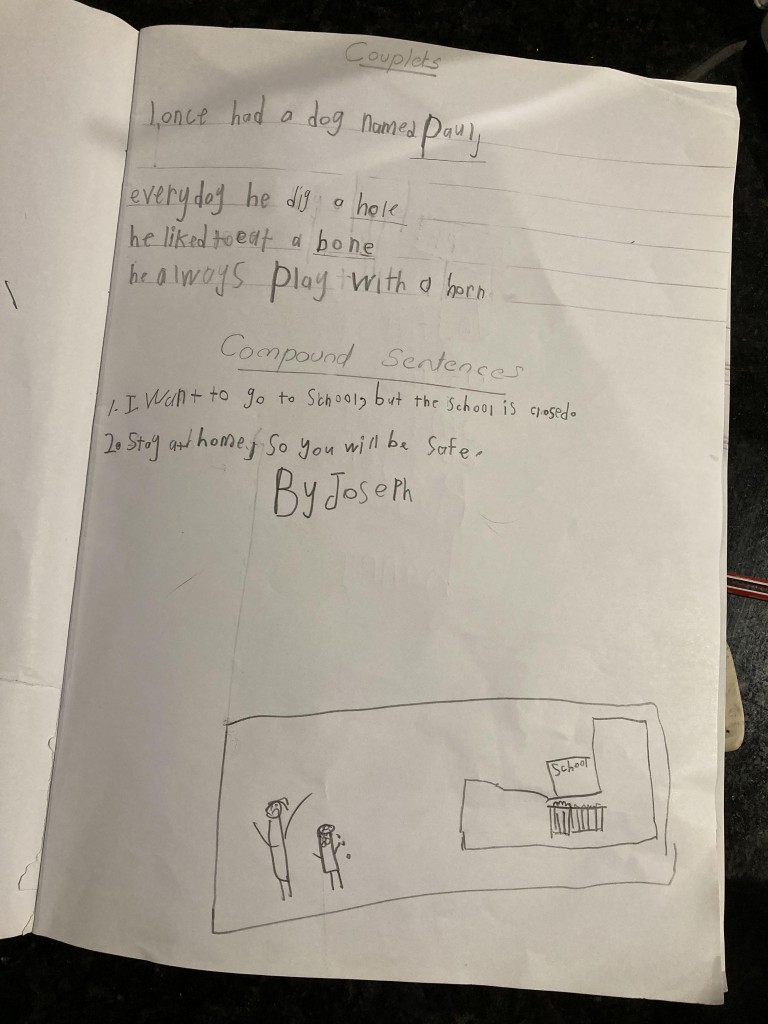 Couplets
I, once had a dog named Paul,
everydog he dig a hole
he liked to eat a bone
he always play with a horn
Compound Sentences
1. I Want to go to School, but the school is closed.
2. Stay at home, So you will be Safe.
By Joseph
School